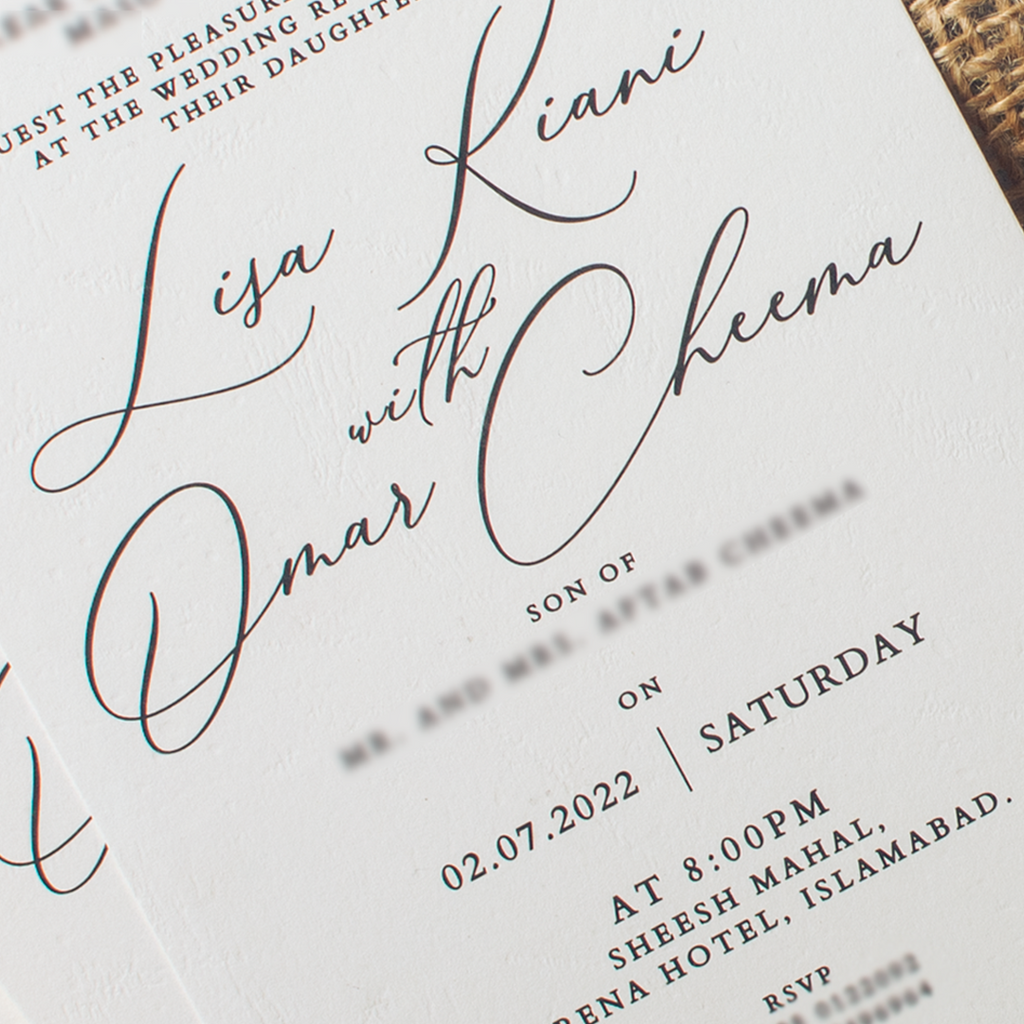 UEST THE PLEASUR
AT THE WEDDING RE
THEIR DAUGHTE
Lisa Kiani
with
Omar Cheema
SON OF
MR. AND MRS. AFTAB CHEEMA
ON
02.07.2022 | SATURDAY
AT 8:00PM
SHEESH MAHAL,
RENA HOTEL, ISLAMABAD.
RSVP